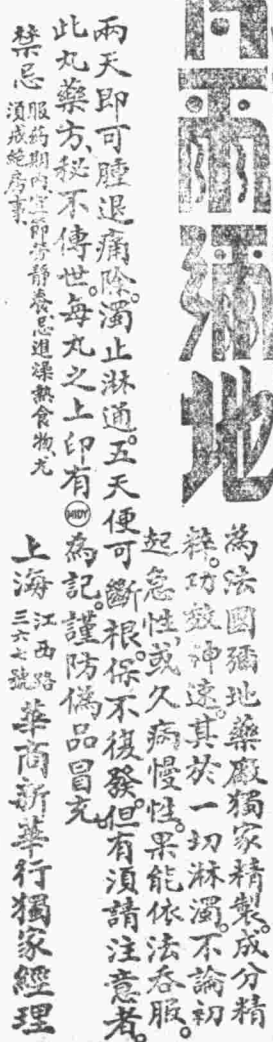 日爾彌地
為法國彌地藥廠獨家精製。成分精
粹。功效神速。其於一切淋濁。不論初
起急性、或久病慢性。果能依法吞服。
兩天即可腫退痛除。濁止淋通。五天便可斷根。保不復發。但有須請注意者。
此丸藥方、秘不傳世。每丸之上印有MIDY為記。謹防偽品冒充
禁忌
服药期内宜節勞静養忌進燥熱食物尤
須戒絕房事
上海
江西路
三六七號
華商新華行獨家經理